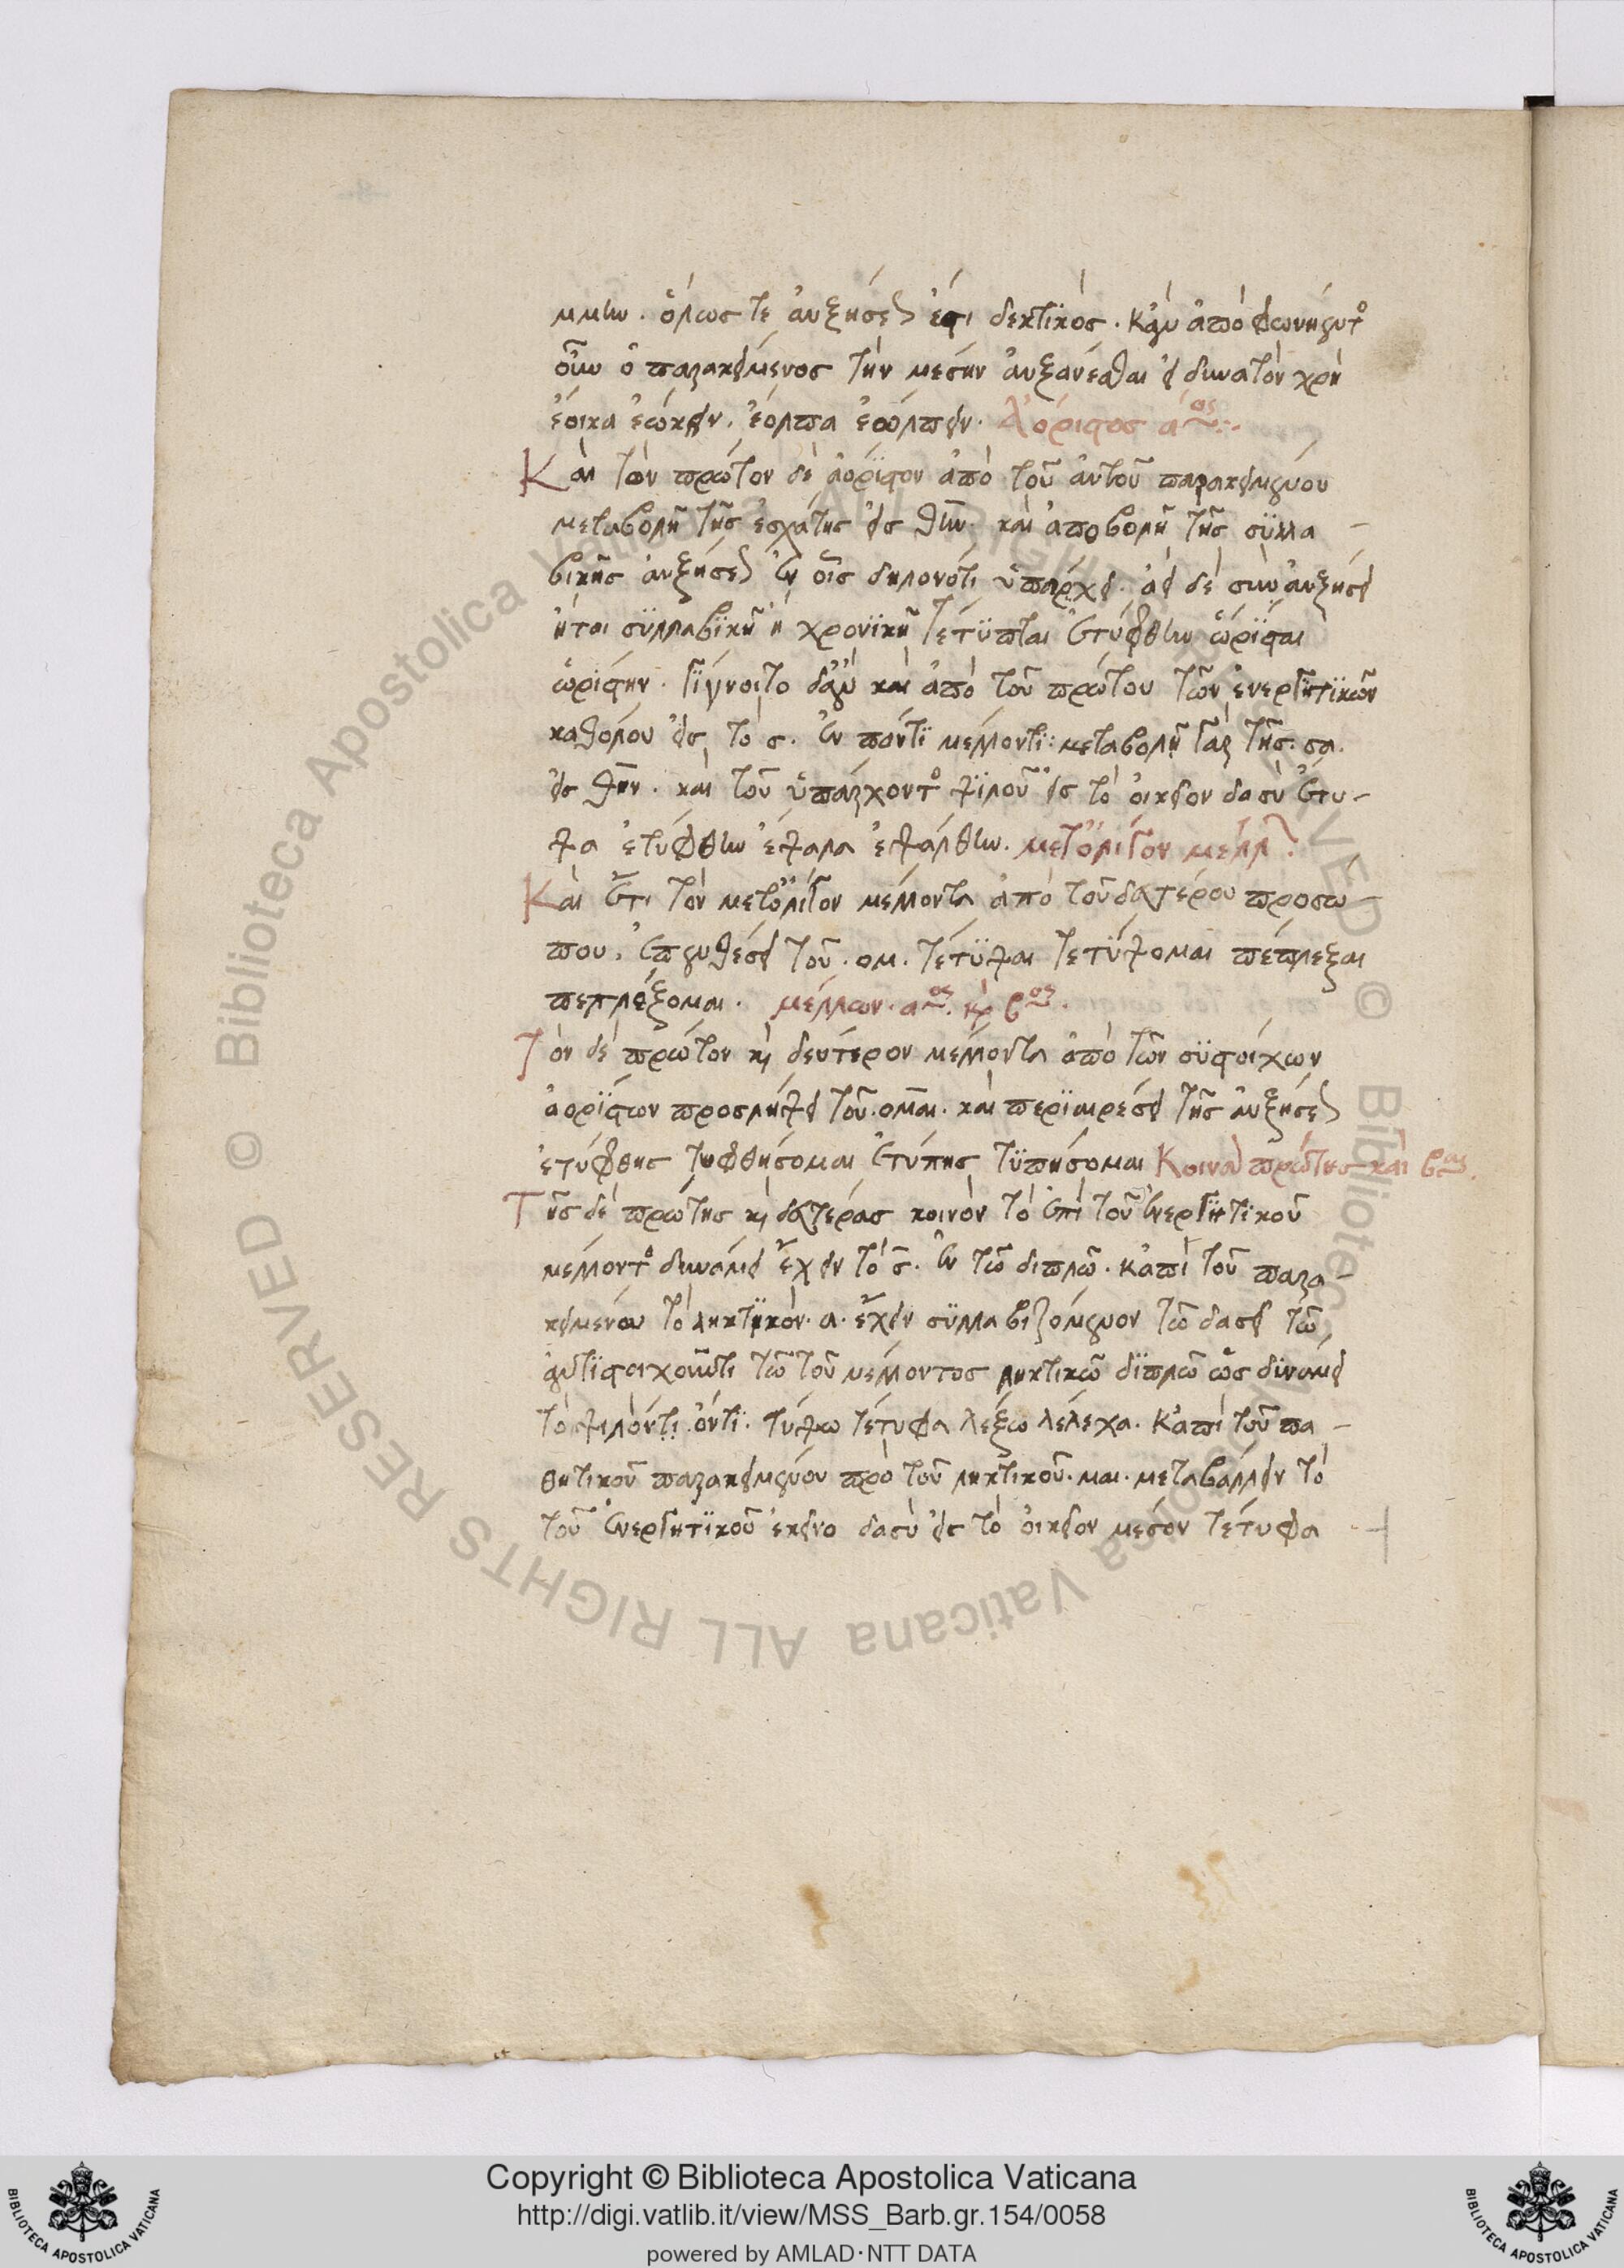 μμην. ὅλως τε ἀυξήσεως ἐστι δεκτικός. κἂν ἀπὸ φωνήεντος
οὖν ὁ παρακείμενος τὴν μέσην ἀυξάνεσθαι εἰ δυνατὸν χρὴ
ἔοικα ἐώκειν. ἔολπα ἐώλπειν. Ἀόριστος αος
Και τὸν πρῶτον δὲ ἀόριστον ἀπὸ τοῦ ἀυτοῦ παρακειμένου
μεταβολῆ τῆς ἐσχάτης εἰς θην. και ἀποβολῆ τῆς συλλα-
βικῆς ἀυξήσεως ἐν οἷς δηλονότι ὑπάρχει. ἀεὶ δὲ συναυξήσει
ἤτοι συλλαβικῆ ἢ χρονικῆ τέτυπται ἐτύφθην ὥρισται
ὡρίσθην. γίγνοιτο δἂν και ἀπὸ τοῦ πρώτου τῶν ἐνεργητικῶν
καθόλου εἰς τὸ σ. ἐν παντὶ μέλλοντι: μεταβολῆ γὰρ τῆς. σα.
εἰς θην. και τοῦ ὑπάρχοντος ψιλοῦ εἰς τὸ οἰκεῖον δασὺ ἔτυ-
ψα ἐτύφθην ἔψαλα ἐψάλθην. μετ ὀλίγον μέλλων
Και ἔτι τὸν μετ ὀλίγον μέλλοντα ἀπὸ τοῦ δευτέρου προσώ-
που. ἐπενθέσει τοῦ. ομ. τέτυψαι τετύψομαι πέπλεξαι
πεπλέξομαι. μέλλων. αος. και βος.
Τὸν δὲ πρῶτον και δεύτερον μέλλοντα ἀπὸ τῶν συστοίχων
ἀορίστων προσλήψει τοῦ. ομαι. και περιαιρέσει τῆς ἀυξήσεως
ἐτύφθης τυφθήσομαι ἐτύπης τυπήσομαι Κοινὰ πρώτης και βας.
Τῆς δὲ πρώτης και δευτέρας κοινὸν τὸ ἐπὶ τοῦ ἐνεργητικοῦ
μέλλοντος δυνάμει ἔχειν τὸ σ. ἐν τῶ διπλῶ. κἀπὶ τοῦ παρα-
κειμένου τὸ ληκτικὸν. α. ἔχειν συλλαβιζόμενον τῶ δασεῖ τῶ
ἀντιστοιχοῦντι τῶ τοῦ μέλλοντος ληκτικῶ διπλῶ ὡς δυνάμει
τὸ ψιλόντι ὄντι. τύψω τέτυφα λέξω λέλεχα. κἀπὶ τοῦ πα-
θητικοῦ παρακειμένου πρὸ τοῦ ληκτικοῦ. μαι. μεταβάλλειν τὸ
τοῦ ἐνεργητικοῦ ἐκεῖνο δασὺ εἰς τὸ οἰκεῖον μέσον τέτυφα
Copyright © Biblioteca Apostolica Vaticana
http://digi.vatlib.it/view/MSS_Barb.gr.154/0058
powered by AMLAD·NTT DATA